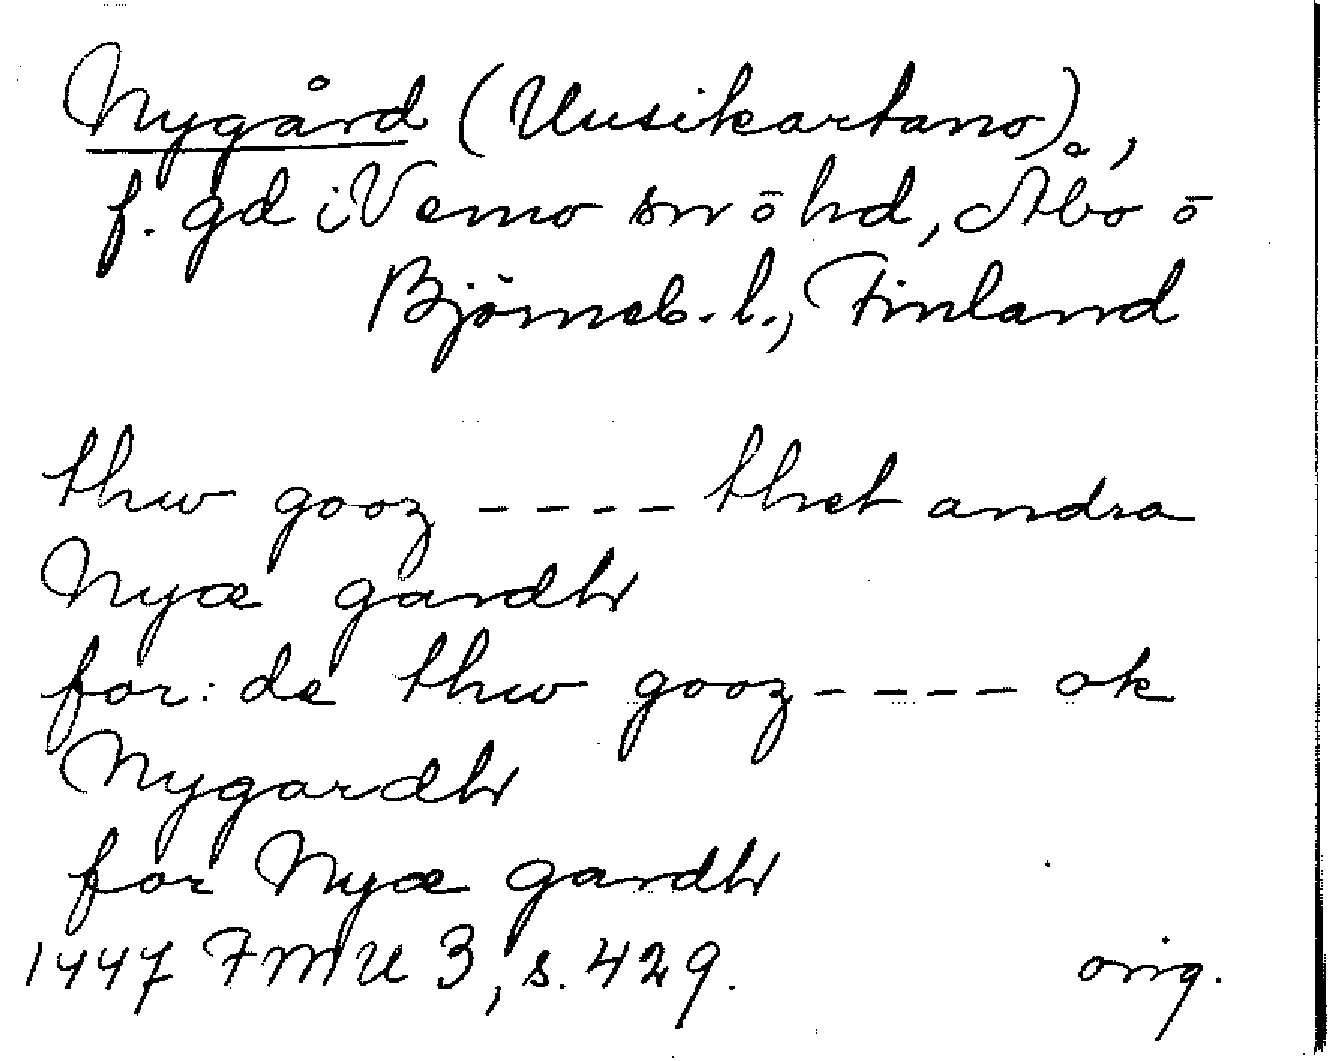 Nygård (Uusikartano),
f. gd i Vemo sn ō hd, Åbo ō
Björneb. l., Finland
thw gooz ---- thet andra
Nyæ gardh
for: de thw gooz ---- ok
Nygardh
for Nyæ gardh
1447 FMU 3, s. 429. orig.